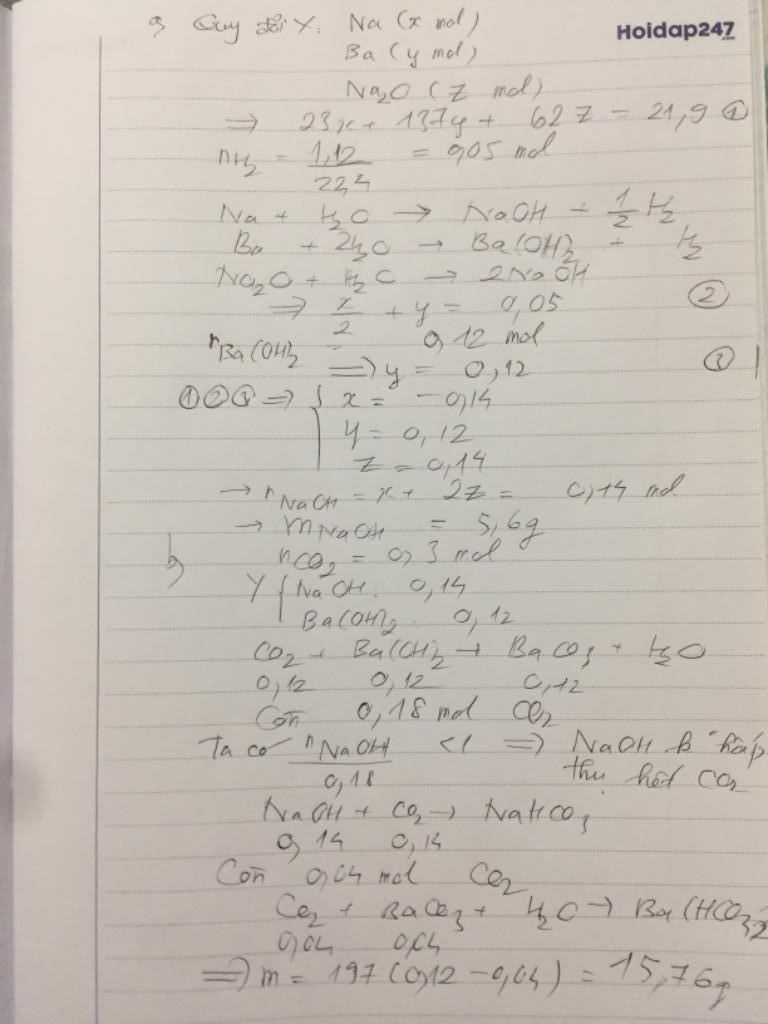 a, Quy đổi Y: Na (x mol)
Hoidap247
.com
Ba (y mol)
Na₂O (z mol)
⇒ 23x + 137y + 62z = 21,9 ①
nH₂ = 1,12/22,4 = 0,05 mol
Na + H₂O → NaOH + 1/2 H₂
Ba + 2H₂O → Ba(OH)₂ + H₂
Na₂O + H₂O → 2NaOH
⇒ x/2 + y = 0,05 ②
nBa(OH)₂ = 0,12 mol
⇒ y = 0,12 ③
①②③ ⇒ { x = -0,14
y = 0,12
z = 0,14
→ nNaOH = x + 2z = 0,14 mol
→ mNaOH = 5,6g
b, nCO₂ = 0,3 mol
Y { NaOH: 0,14
Ba(OH)₂: 0,12
CO₂ + Ba(OH)₂ → BaCO₃ + H₂O
0,12 0,12 0,12
Còn 0,18 mol CO₂
Ta có nNaOH/0,18 <1 ⇒ NaOH k hấp
thụ hết CO₂
NaOH + CO₂ → NaHCO₃
0,14 0,14
Còn 0,04 mol CO₂
CO₂ + BaCO₃ + H₂O → Ba(HCO₃)₂
0,04 0,04
⇒ m = 197(0,12 - 0,04) = 15,76g